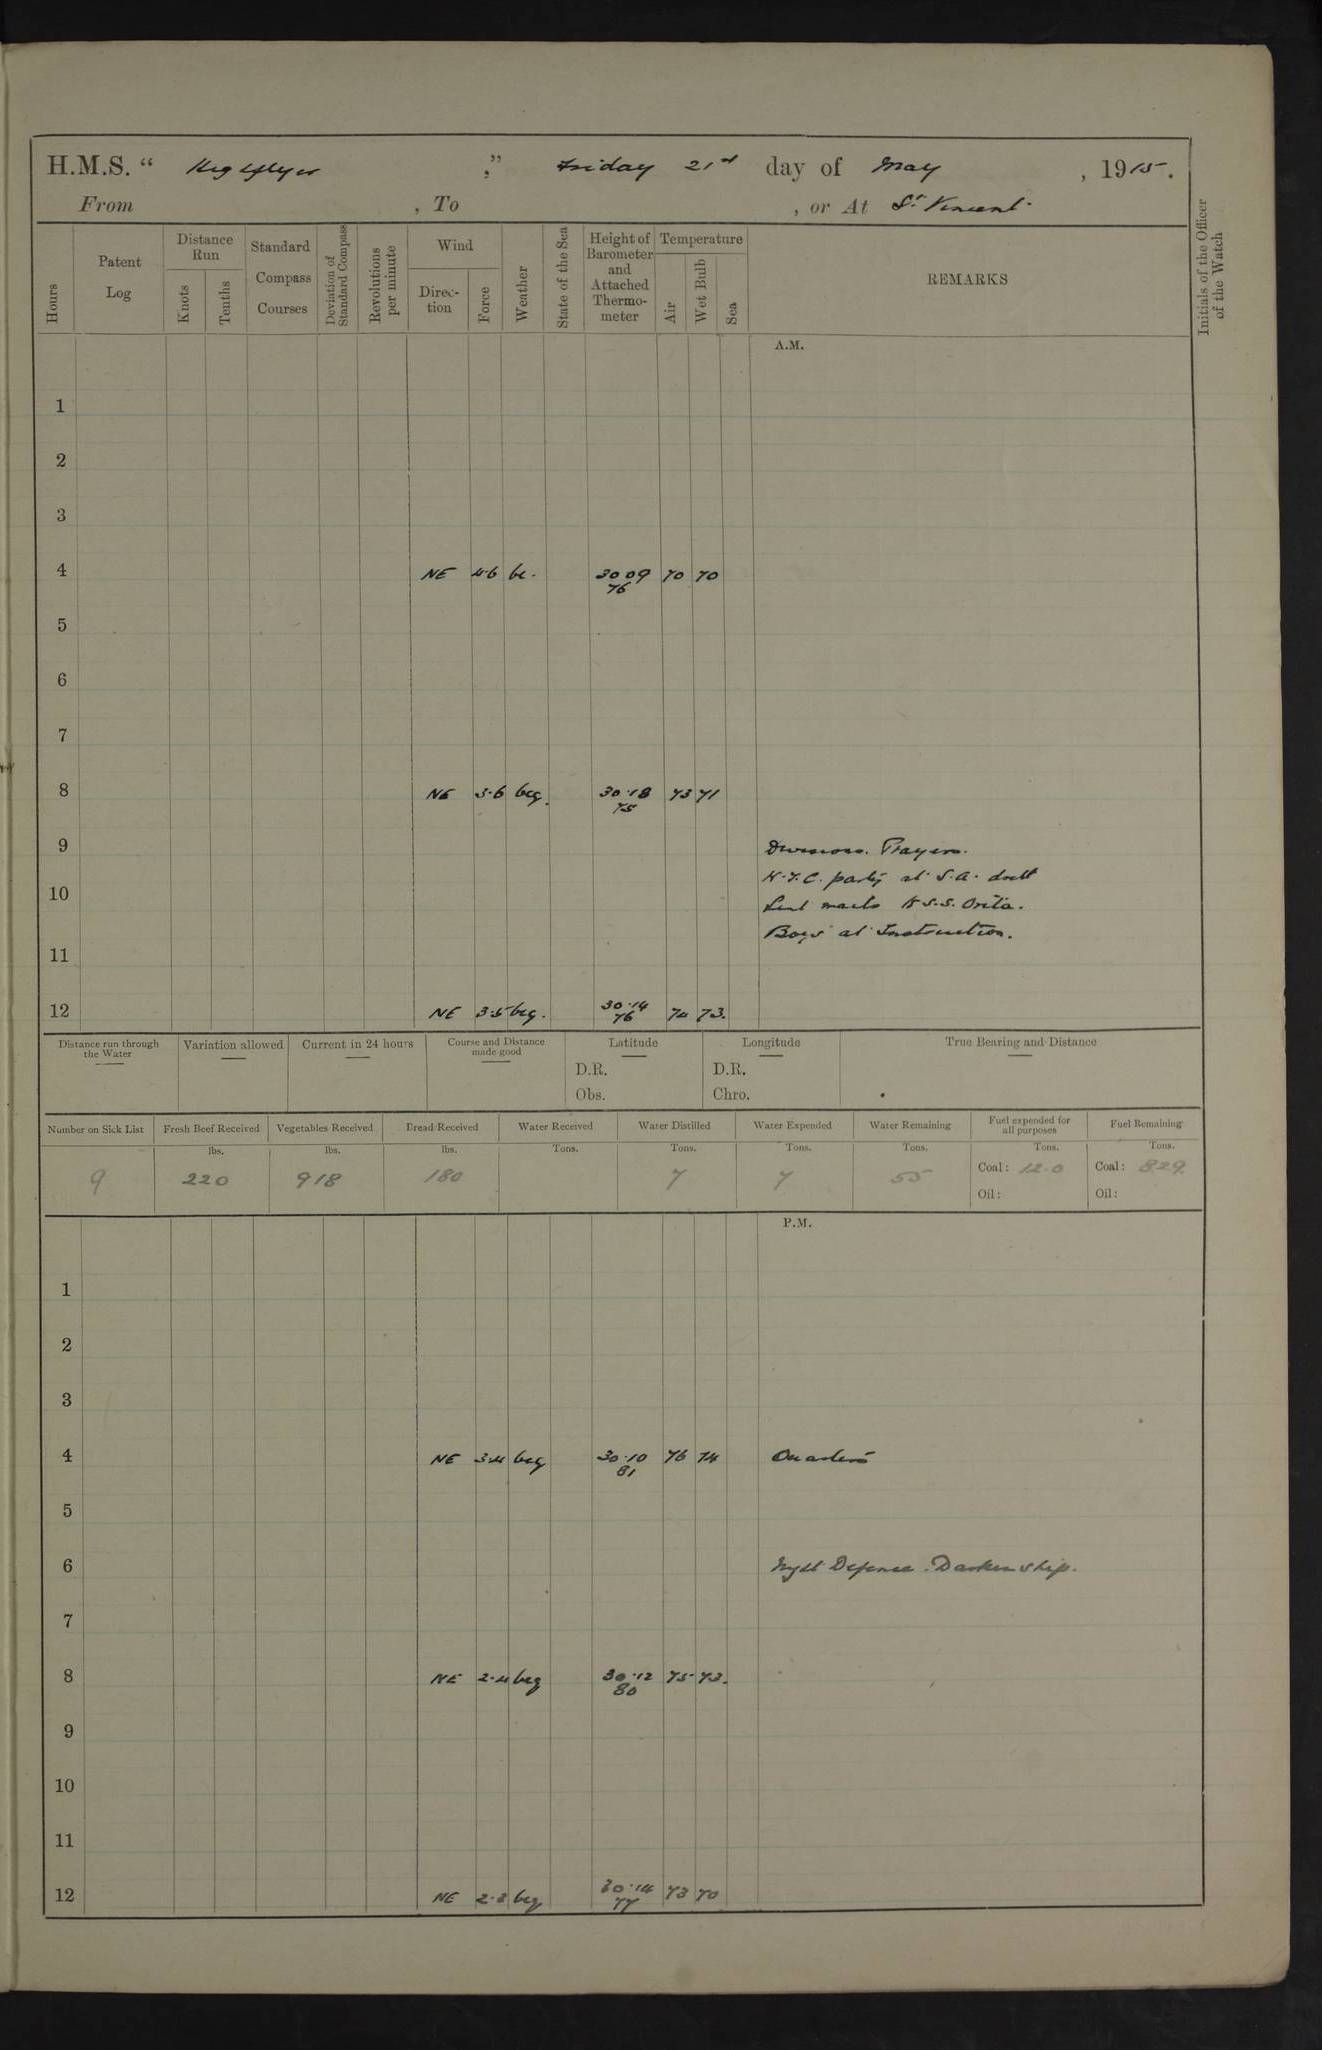 H.M.S. " Highflyer ," Friday 21st day of May , 1915.
From , To , or At St Vincent.
Hours Patent Log Distance Run Knots Tenths Standard Compass Courses Deviation of Standard Compass Revolutions per minute Wind Direc-tion Force Weather State of the Sea Height of Barometer and Attached Thermo-meter Temperature Air Wet Bulb Sea REMARKS Initials of the Officer of the Watch
A.M.
1
2
3
4 NE 4.6 bc. 30 09 70 70
76
5
6
7
8 NE 3.6 bcg. 30.18 73 71
75
9 Divisions. Prayers.
party at S.A. drill
10
Sent mails to S.S. Orita.
Boys at Instruction.
11
12 NE 3.5 bcg. 30.14 74 73.
76
Distance run through the Water Variation allowed Current in 24 hours Course and Distance made good Latitude Longitude True Bearing and Distance
D.R. D.R.
Obs. Chro.
Number on Sick List Fresh Beef Received Vegetables Received Bread Received Water Received Water Distilled Water Expended Water Remaining Fuel expended for all purposes Fuel Remaining
lbs. lbs. lbs. Tons. Tons. Tons. Tons. Tons. Tons.
9 220 918 180 7 7 55 Coal: 12.0 Coal: 829.
Oil: Oil:
P.M.
1
2
3
4 NE 3.4 bcg 30.10 76 74 Quarters
81
5
6 Night Defence. Darken ship.
7
8 NE 2.4 bcg 30.12 75 73.
80
9
10
11
12 NE 2.3 bcg 30.14 73 70
77